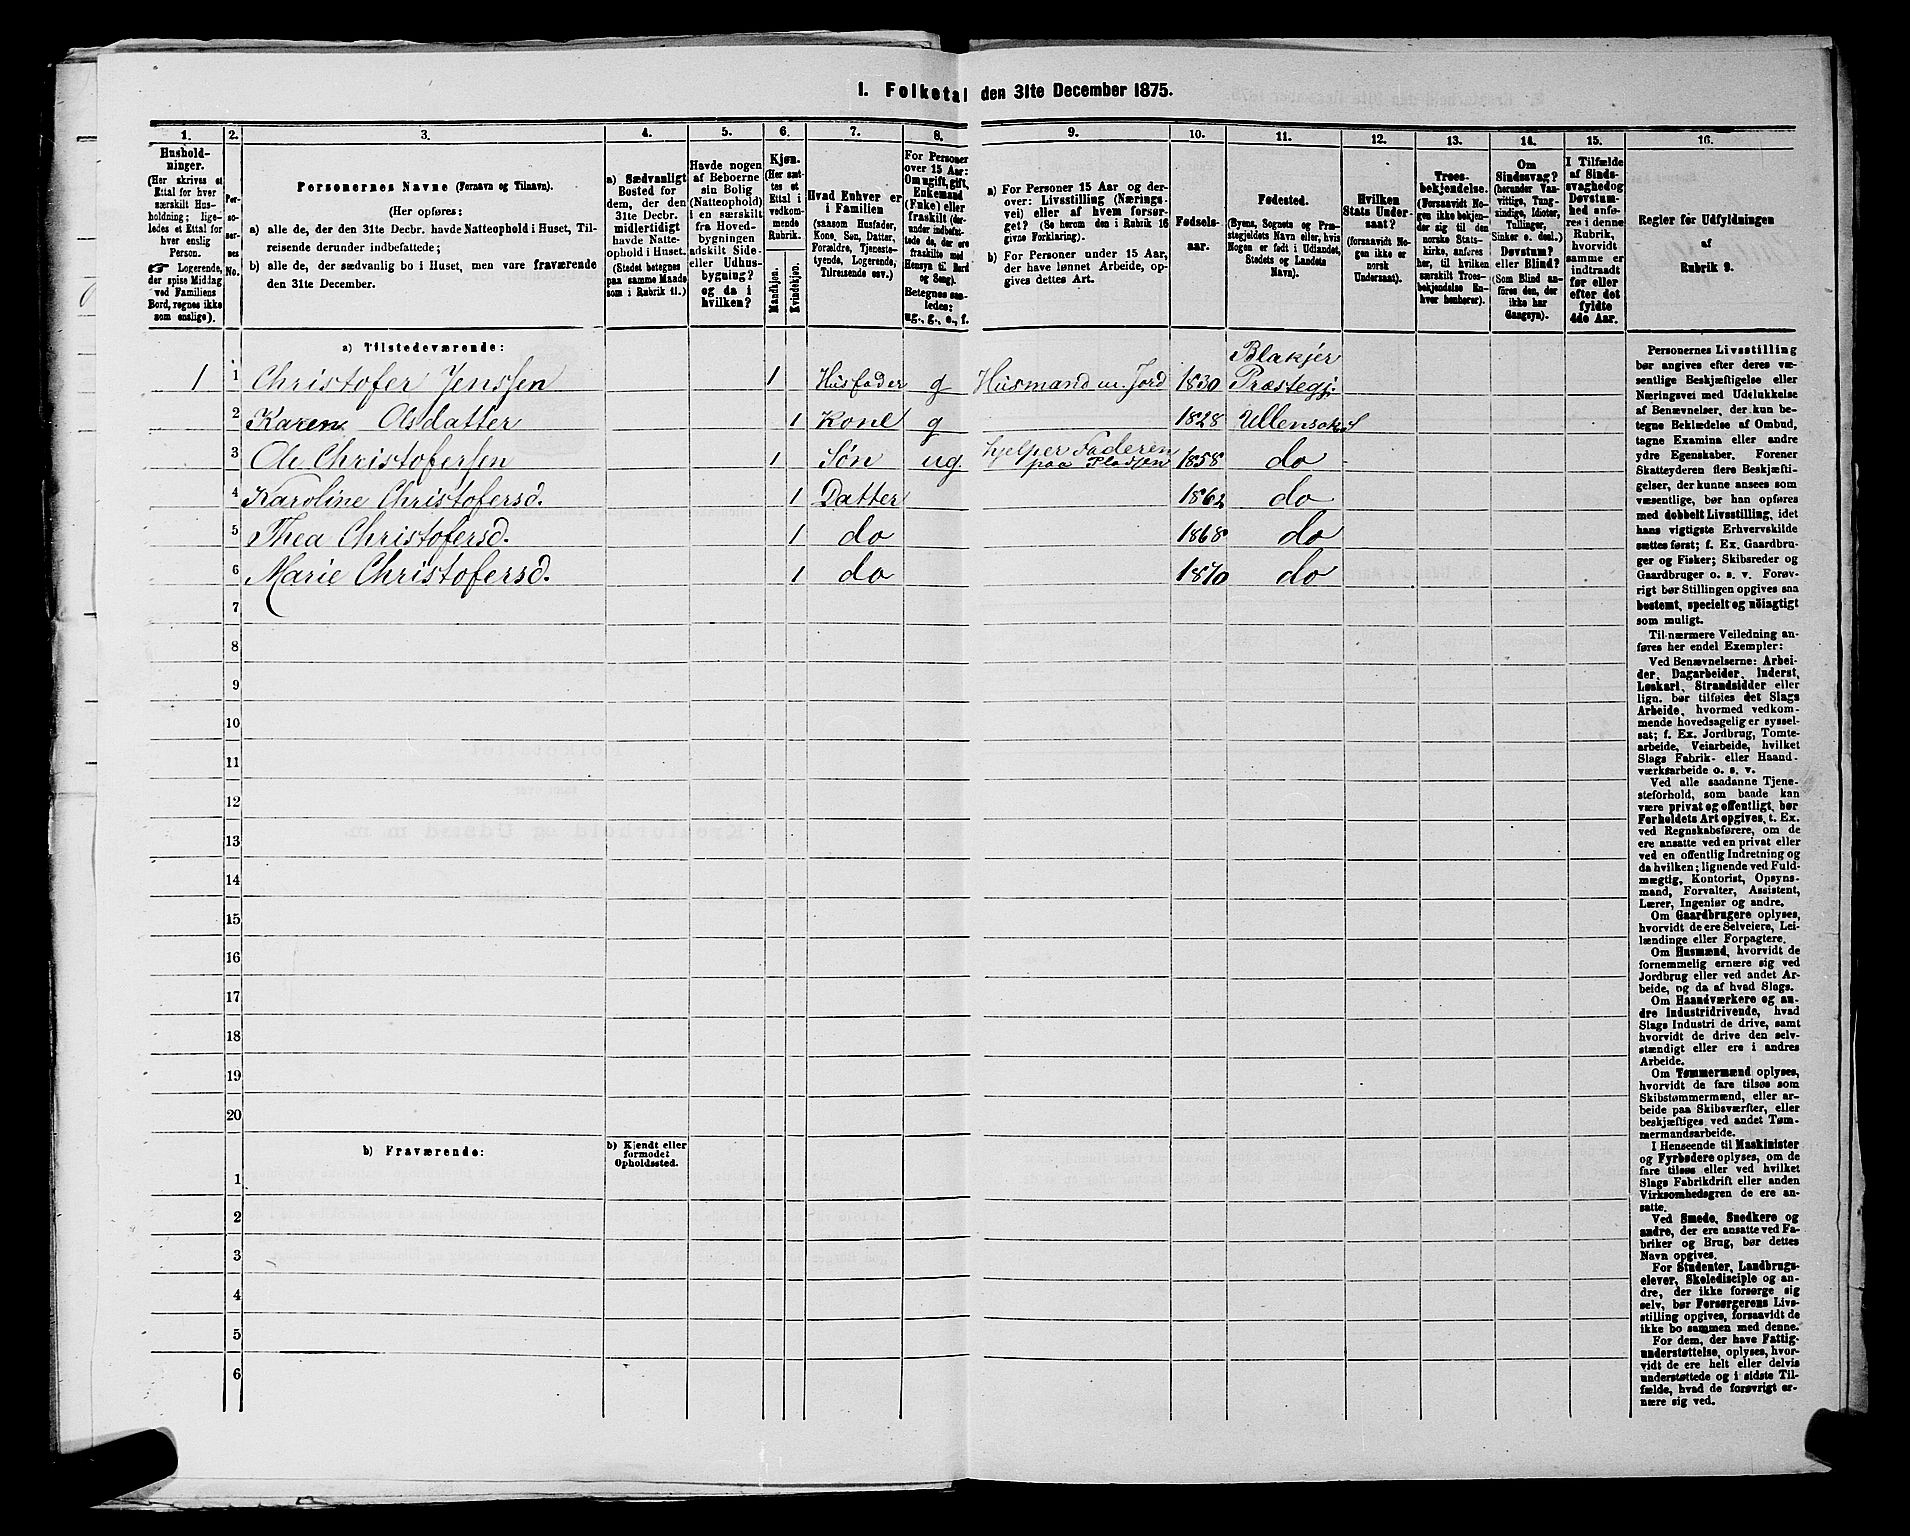 1. Folketal den 31te December 1875.
1.
2.
3.
4.
5.
6.
7.
8.
9.
10.
11.
12.
13.
14.
15.
16.
Hushold-
ninger.
(Her skrives et
Ettal for hver
særskilt Hus-
holdning; lige-
ledes et Ettal for
hver enslig
Person.
☞ Logerende,
der spise Middag
ved Familiens
Bord, regnes ikke
som enslige).
Per-
so-
ner-
nes
No.
Personernes Navne (Fornavn og Tilnavn).
(Her opføres:
a) alle de, der den 31te Decbr. havde Natteophold i Huset, Til-
reisende derunder indbefattede;
b) alle de, der sædvanlig bo i Huset, men vare fraværende
den 31te December.
a) Sædvanligt
Bosted for
dem, der den
31te Decbr.
midlertidigt
havde Natte-
ophold i Huset.
(Stedet betegnes
paa samme Maade
som i Rubrik 11.)
Havde nogen
af Beboerne
sin Bolig
(Natteophold)
i en særskilt
fra Hoved-
bygningen
adskilt Side-
eller Udhus-
bygning?
og da i
hvilken?
Kjøn.
(Her sæt-
tes et
Ettal i
vedkom-
mende
Rubrik.
Mandkjøn.
Kvindekjøn.
Hvad Enhver er
i Familien
(saasom Husfader,
Kone, Søn, Datter,
Forældre, Tjeneste-
tyende, Logerende,
Tilreisende osv.)
For Personer
over 15 Aar:
Om ugift, gift,
Enkemand
(Enke) eller
fraskilt (der-
under indbefat-
tede de, der ere
fraskilte med
Hensyn til Bord
og Seng).
Betegnes saa-
ledes:
ug., g., e., f.
a) For Personer 15 Aar og der-
over: Livsstilling (Nærings-
vei) eller af hvem forsør-
get? (Se herom den i Rubrik 16
givne Forklaring).
b) For Personer under 15 Aar,
der have lønnet Arbeide, op-
gives dettes Art.
Fødsels-
aar.
Fødested.
(Byens, Sognets og Præ-
stegjeldets Navn eller, hvis
Nogen er født i Udlandet,
Stedets og Landets
Navn).
Hvilken
Stats Under-
saat?
(forsaavidt No-
gen ikke er
norsk
Undersaat).
Troes-
bekjendelse.
(Forsaavidt No-
gen ikke bekjen-
der sig til den
norske Stats-
kirke, anføres
her, til hvilken
særskilt Troes-
bekjendelse En-
hver henhører).
Om
Sindssvag?
(herunder Van-
vittige, Tung-
sindige, Idioter,
Tullinger,
Sinker o. desl.)
Døvstum?
eller Blind?
(Som Blind an-
føres den, der
ikke har
Gangsyn).
I Tilfælde
af Sinds-
svaghed og
Døvstum-
hed anfø-
res i denne
Rubrik,
hvorvidt
samme er
indtraadt
før eller
efter det
fyldte
4de Aar.
Regler før Udfyldningen
af
Rubrik 9.
a) Tilstedeværende:
1 1 Christofer Jenssen 1 Husfader g Husmand m. Jord 1830 Blakjer
Præstegj.
2 Karen Olsdatter 1 Kone g 1828 Ullensaker
3 Ole Christofersen 1 Søn ug. hjelper Faderen
paa Pladsen 1858 do
4 Karoline Christofersd. 1 Datter 1862 do
5 Thea Christofersd. 1 do 1868 do
6 Marie Christofersd. 1 do 1870 do
7
8
9
10
11
12
13
14
15
16
17
18
19
20
b) Fraværende:
b) Kjendt eller
formodet
Opholdssted.
1
2
3
4
5
6
Personernes Livsstilling
bør angives efter deres væ-
sentlige Beskjæftigelse eller
Næringsvei med Udelukkelse
af Benævnelser, der kun be-
tegne Beklædelse af Ombud,
tagne Examina eller andre
ydre Egenskaber. Forener
Skatteyderen flere Beskjæfti-
gelser, der kunne ansees som
væsentlige, bør han opføres
med dobbelt Livsstilling, idet
hans vigtigste Erhvervskilde
sættes først; f. Ex. Gaardbru-
ger og Fisker; Skibsreder og
Gaardbruger o. s. v. Forøv-
rigt bør Stillingen opgives saa
bestemt, specielt og nöiagtigt
som muligt.
Til nærmere Veiledning an-
føres her endel Exempler:
Ved Benævnelserne: Arbei-
der, Dagarbeider, Inderst,
Løskarl, Strandsidder eller
lign. bør tilføies det Slags
Arbeide, hvormed vedkom-
mende hovedsagelig er syssel-
sat; f. Ex. Jordbrug, Tomte-
arbeide, Veiarbeide, hvilket
Slags Fabrik- eller Haand-
værksarbeide o. s. v.
Ved alle saadanne Tjene-
steforhold, som baade kan
være privat og offentligt, bør
Forholdets Art opgives, t. Ex.
ved Regnskabsførere, om de
ere ansatte ved en privat eller
ved en offentlig Indretning og
da hvilken; lignende ved Fuld-
mægtig, Kontorist, Opsyns-
mand, Forvalter, Assistent,
Lærer, Ingeniør og andre.
Om Gaardbrugere oplyses,
hvorvidt de ere Selveiere, Lei-
lændinge eller Forpagtere.
Om Husmænd, hvorvidt de
fornemmelig ernære sig ved
Jordbrug eller ved andet Ar-
beide, og da af hvad Slags.
Om Haandværkere og an-
dre Industridrivende, hvad
Slags Industri de drive, samt
hvorvidt de drive den selv-
stændigt eller ere i andres
Arbeide.
Om Tømmermænd oplyses,
hvorvidt de fare tilsøs som
Skibstømmermænd, eller ar-
beide paa Skibsværfter, eller
beskjæftiges ved andet Tøm-
mermandsarbeide.
I Henseende til Maskinister
og Fyrbødere oplyses, om de
fare tilsøs eller ved hvilket
Slags Fabrikdrift eller anden
Virksomhedsgren de ere an-
satte.
Ved Smede, Snedkere og
andre, der ere ansatte ved Fa-
briker og Brug, bør dettes
Navn opgives.
For Studenter, Landbrugs-
elever, Skoledisciple og an-
dre, der ikke forsørge sig
selv, bør Forsørgerens Livs-
stilling opgives, forsaavidt de
ikke bo sammen med denne.
For dem, der have Fattig-
understøttelse, oplyses, hvor-
vidt de ere helt eller delvis
understøttede og i sidste Til-
fælde, hvad de forøvrigt er-
nære sig ved.